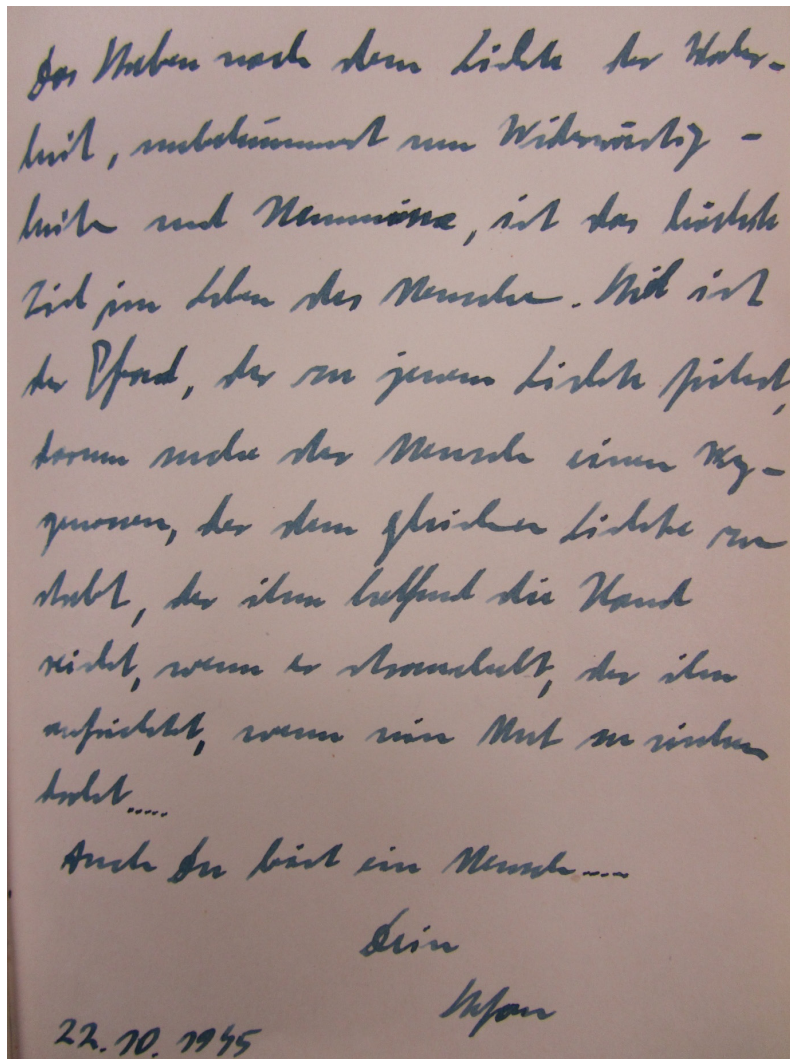 Das Streben nach dem Lichte der Wahr-
heit, unbekümmert um Widerwärtig-
keiten und Hemmnisse, ist das höchste
Ziel im Leben des Menschen. Steil ist
der Pfad, der zu jenem Lichte führt,
darum suche der Mensch einen Weg-
genossen, der dem gleichen Lichte zu
strebt, der ihm helfend die Hand
reicht, wenn er strauchelt, der ihn
aufrichtet, wenn sein Mut zu sinken
droht.....
Auch Du bist ein Mensch....
Dein
Stefan
22.10.1945